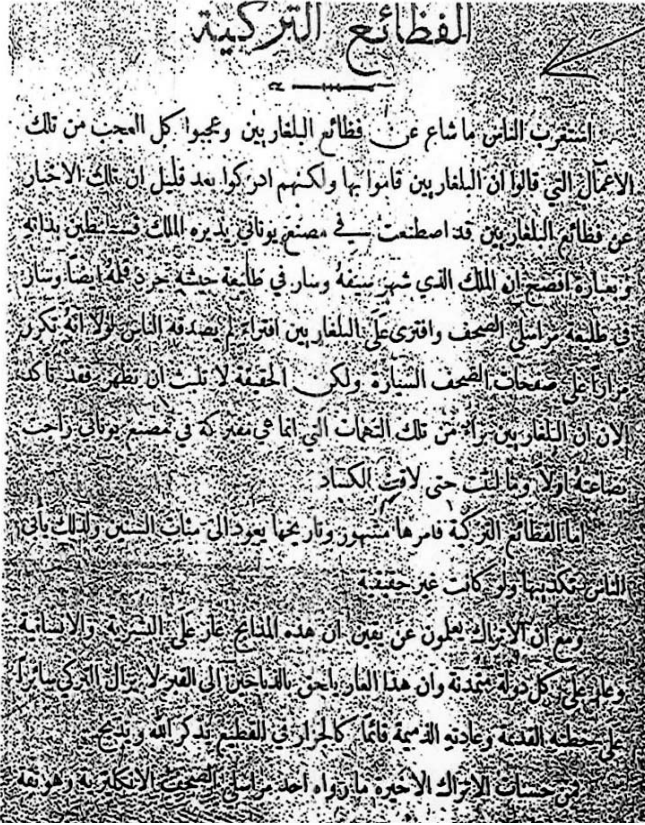 الفظائع التركية
استغرب الناس ما شاع عن فظائع البلغاريين وعجبوا كل العجب من تلك
الاعمال التي قالوا ان البلغاريين قاموا بها ولكنهم ادركوا بعد قليل ان تلك الاخبار
عن فظائع البلغاريين قد اصطنعت في مصنع يوناني يديره الملك قسطنطين بذاته
وبعبارة افصح ان الملك الذي شهر سيفهُ وسار في طليعة جيشه جرد قلمهُ ايضاً وسار
في طليعة مراسلي الصحف وافترى على البلغاريين افتراء لم يصدقه الناس لولا انهُ تكرر
مراراً على صفحات الصحف السيارة ولكن الحقيقة لا تلبث ان تظهر فقد تأكد
الان ان البلغاريين براء من تلك التهمات التي انما هي مفبركة في مصنع يوناني راجت
بضاعتهُ اولاً وما لبثت حتى لاقت الكساد
اما الفظائع التركية فامرها مشهور وتاريخها يعود الى مئات السنين ولذلك يأبى
الناس تكذيبها ولو كانت غير حقيقية
ومع ان الاتراك يعلمون عن يقين ان هذه المذابح عار على البشرية والانسانية
وعار على كل دولة متمدنة وان هذا العار يلحق بالذباحين الى القبر لا يزال التركي سائراً
على خطته القديمة وعادته الذميمة قائماً كالجزار في القطيع يذكر الله ويذبح
من حسنات الاتراك الاخيرة ما رواه احد مراسلي الصحف الانكليزية وهو ثقة